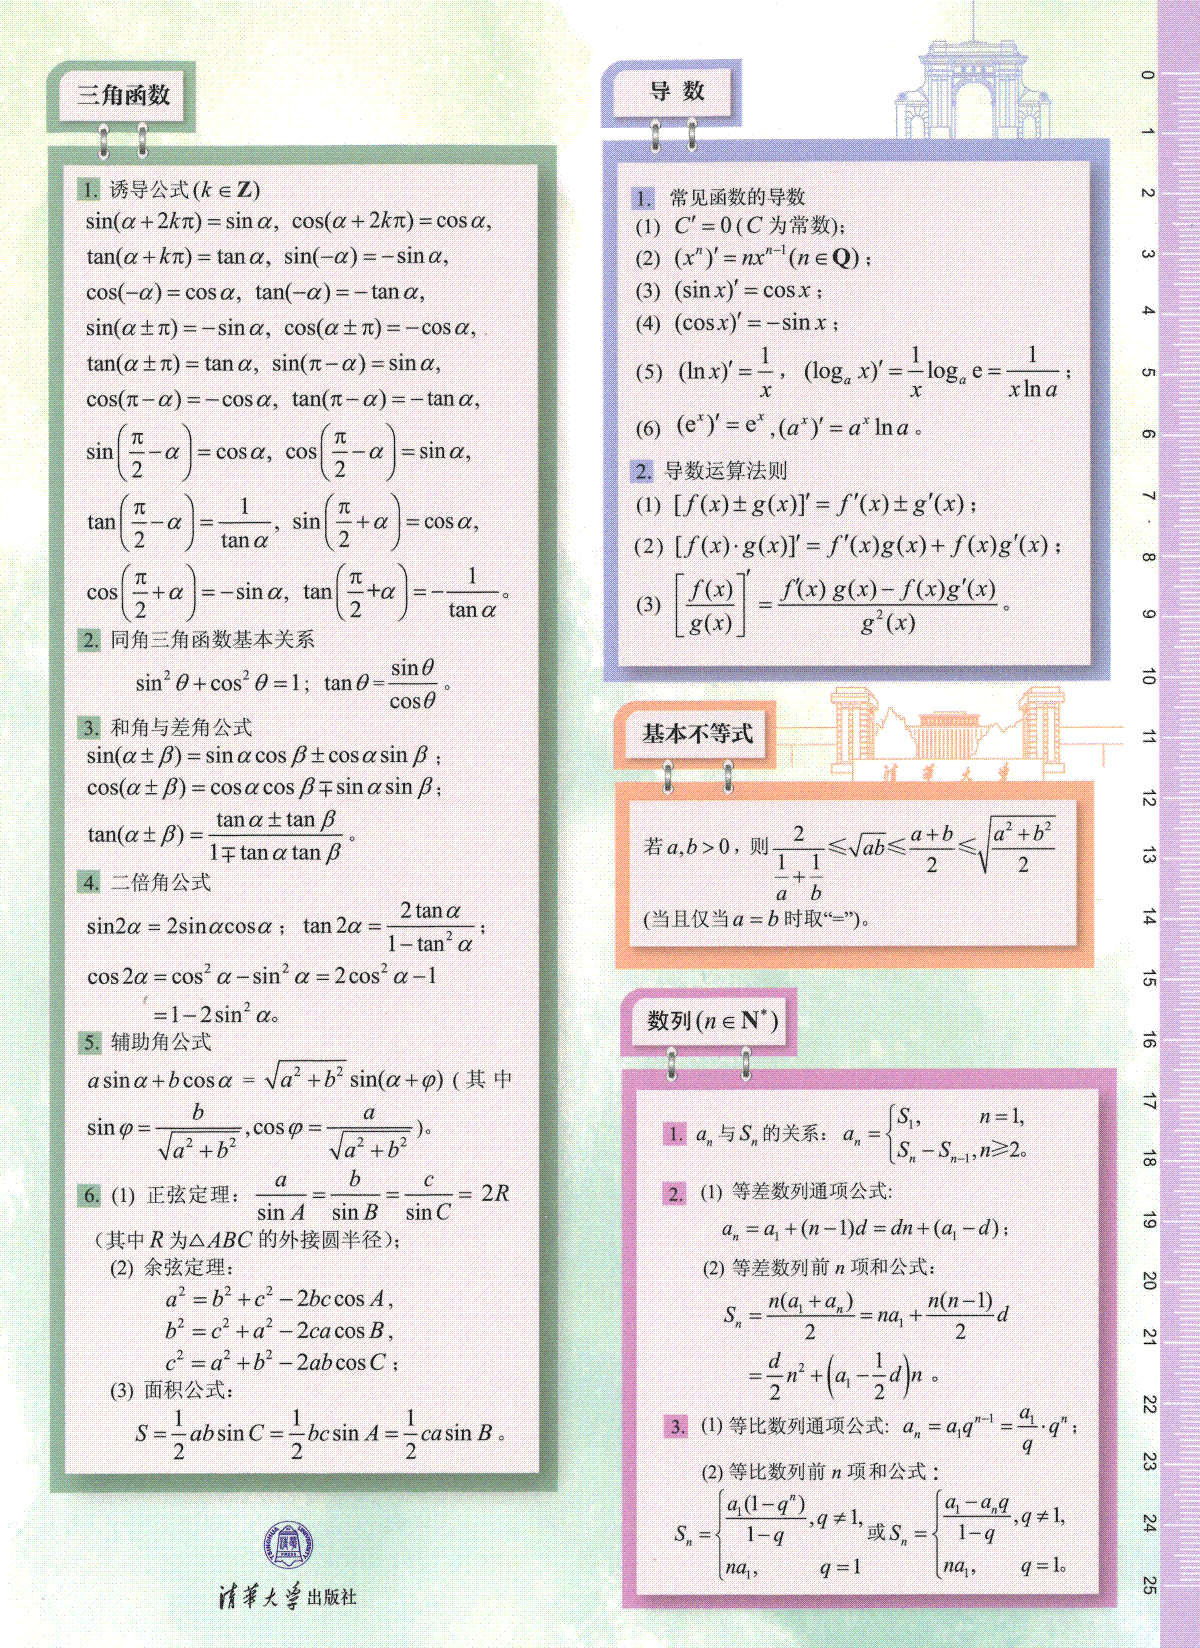 三角函数
1. 诱导公式(k∈Z)
sin(α+2kπ)=sinα, cos(α+2kπ)=cosα,
tan(α+kπ)=tanα, sin(−α)=−sinα,
cos(−α)=cosα, tan(−α)=−tanα,
sin(α±π)=−sinα, cos(α±π)=−cosα,
tan(α±π)=tanα, sin(π−α)=sinα,
cos(π−α)=−cosα, tan(π−α)=−tanα,
sin(π/2−α)=cosα, cos(π/2−α)=sinα,
tan(π/2−α)=1/tanα, sin(π/2+α)=cosα,
cos(π/2+α)=−sinα, tan(π/2+α)=−1/tanα。
2. 同角三角函数基本关系
sin²θ+cos²θ=1; tanθ=sinθ/cosθ。
3. 和角与差角公式
sin(α±β)=sinαcosβ±cosαsinβ;
cos(α±β)=cosαcosβ∓sinαsinβ;
tan(α±β)=(tanα±tanβ)/(1∓tanαtanβ)。
4. 二倍角公式
sin2α=2sinαcosα; tan2α=2tanα/(1−tan²α);
cos2α=cos²α−sin²α=2cos²α−1
=1−2sin²α。
5. 辅助角公式
asinα+bcosα=√(a²+b²)sin(α+φ)(其中
sinφ=b/√(a²+b²),cosφ=a/√(a²+b²))。
6. (1) 正弦定理: a/sinA=b/sinB=c/sinC=2R
(其中R为△ABC的外接圆半径);
(2) 余弦定理:
a²=b²+c²−2bccosA,
b²=c²+a²−2cacosB,
c²=a²+b²−2abcosC;
(3) 面积公式:
S=1/2absinC=1/2bcsinA=1/2casinB。
清华大学出版社
导数
1. 常见函数的导数
(1) C′=0(C为常数);
(2) (xⁿ)′=nxⁿ⁻¹(n∈Q);
(3) (sinx)′=cosx;
(4) (cosx)′=−sinx;
(5) (lnx)′=1/x, (logₐx)′=1/x logₐe=1/(xlna);
(6) (eˣ)′=eˣ,(aˣ)′=aˣlna。
2. 导数运算法则
(1) [f(x)±g(x)]′=f′(x)±g′(x);
(2) [f(x)·g(x)]′=f′(x)g(x)+f(x)g′(x);
(3) [f(x)/g(x)]′=(f′(x)g(x)−f(x)g′(x))/g²(x)。
基本不等式
清华大学
若a,b>0,则2/(1/a+1/b)≤√ab≤(a+b)/2≤√((a²+b²)/2)
(当且仅当a=b时取“=”)。
数列(n∈N*)
1. aₙ与Sₙ的关系: aₙ={S₁, n=1,
Sₙ−Sₙ₋₁,n≥2。
2. (1) 等差数列通项公式:
aₙ=a₁+(n−1)d=dn+(a₁−d);
(2) 等差数列前n项和公式:
Sₙ=n(a₁+aₙ)/2=na₁+n(n−1)/2 d
=d/2 n²+(a₁−1/2d)n。
3. (1) 等比数列通项公式: aₙ=a₁qⁿ⁻¹=a₁/q·qⁿ;
(2) 等比数列前n项和公式:
Sₙ={a₁(1−qⁿ)/(1−q),q≠1, 或Sₙ={(a₁−aₙq)/(1−q),q≠1,
na₁, q=1 na₁, q=1。
0
1
2
3
4
5
6
7
8
9
10
11
12
13
14
15
16
17
18
19
20
21
22
23
24
25